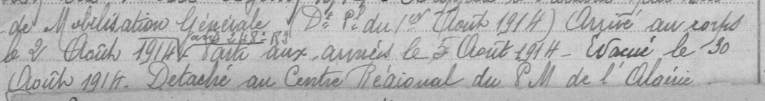 de Mobilisation Générale Dt Pl du 1er Août 1914) Arrivé au corps
le 2 Août 1914. Parti aux armées le 5 Août 1914 - Evacué le 30
Août 1914. Detaché au Centre Régional du P M de l'Algérie.